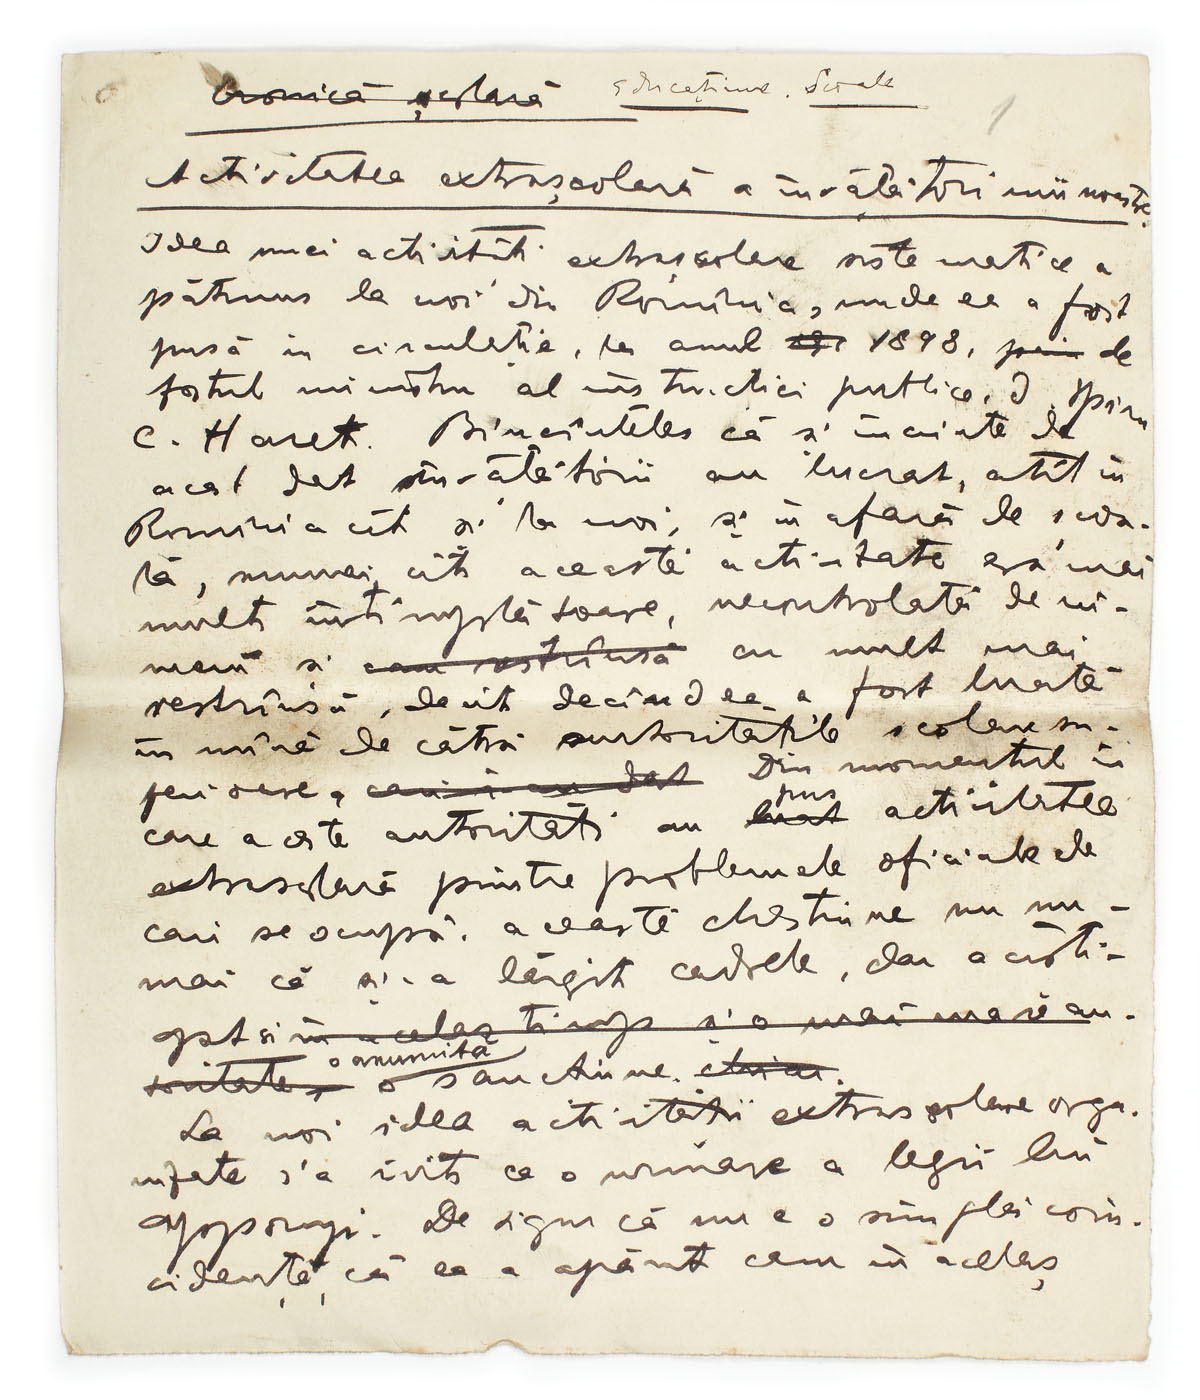 Cronică școlară educațiune. Școale
1
Activitatea extrașcolară a învățătorimii noastre.
Idea unei activități extrașcolare sistematice a
pătruns la noi din România, unde ea a fost
pusă în circulație, la anul 1898, prin de
fostul ministru al instrucției publice, d. Spiru
C. Haret. Bineînțeles că și înainte de
acest dat învățătorii au lucrat, atît în
România cît și la noi, și în afară de școa-
lă, numai cît această activitate eră mai
mult întîmplătoare, necontrolată de ni-
meni și cam restrînsă cu mult mai
restrînsă, decît decînd ea a fost luată
în mînă de cătră autoritățile școlare su-
perioare, cari i-au dat Din momentul în
care aceste autorități au luat pus activitatea
extrașcolară printre problemele oficiale de
cari se ocupă, această chestiune nu nu-
mai că și-a lărgit cadrele, dar a cîști-
gat și în acelaș timp și o mai mare au-
toritate, o anumită o sancțiune. chiar.
La noi idea activității extrașcolare orga-
nizate s'a ivit ca o urmare a legii lui
Apponyi. De sigur că nu e o simplă coin-
cidență, că ea a apărut cam în acelaș